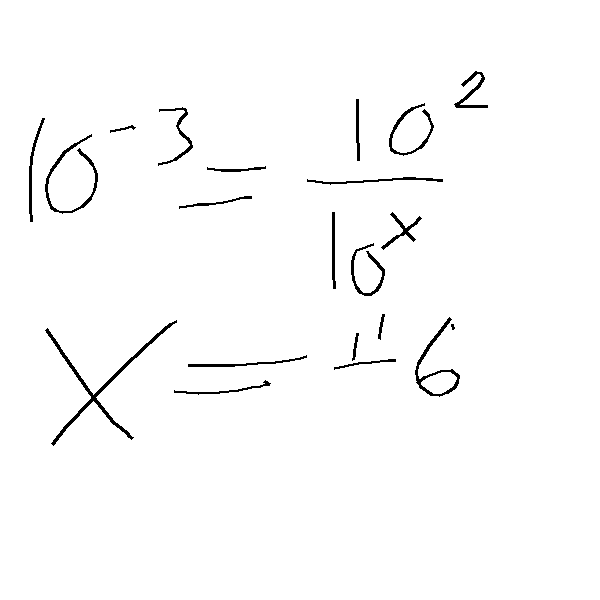 10⁻³ = 10² / 10ˣ
x = 6